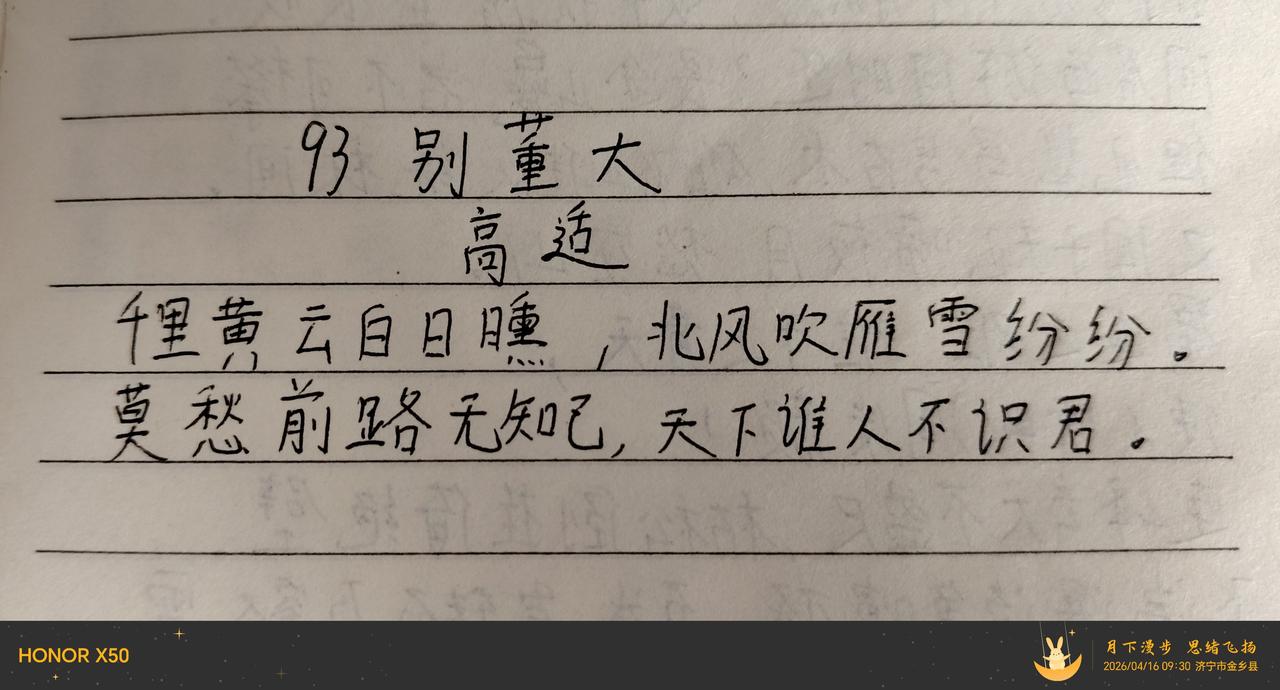 93 别董大
高适
千里黄云白日曛，北风吹雁雪纷纷。
莫愁前路无知己，天下谁人不识君。
HONOR X50
月下漫步 思绪飞扬
2026/04/16 09:30 济宁市金乡县